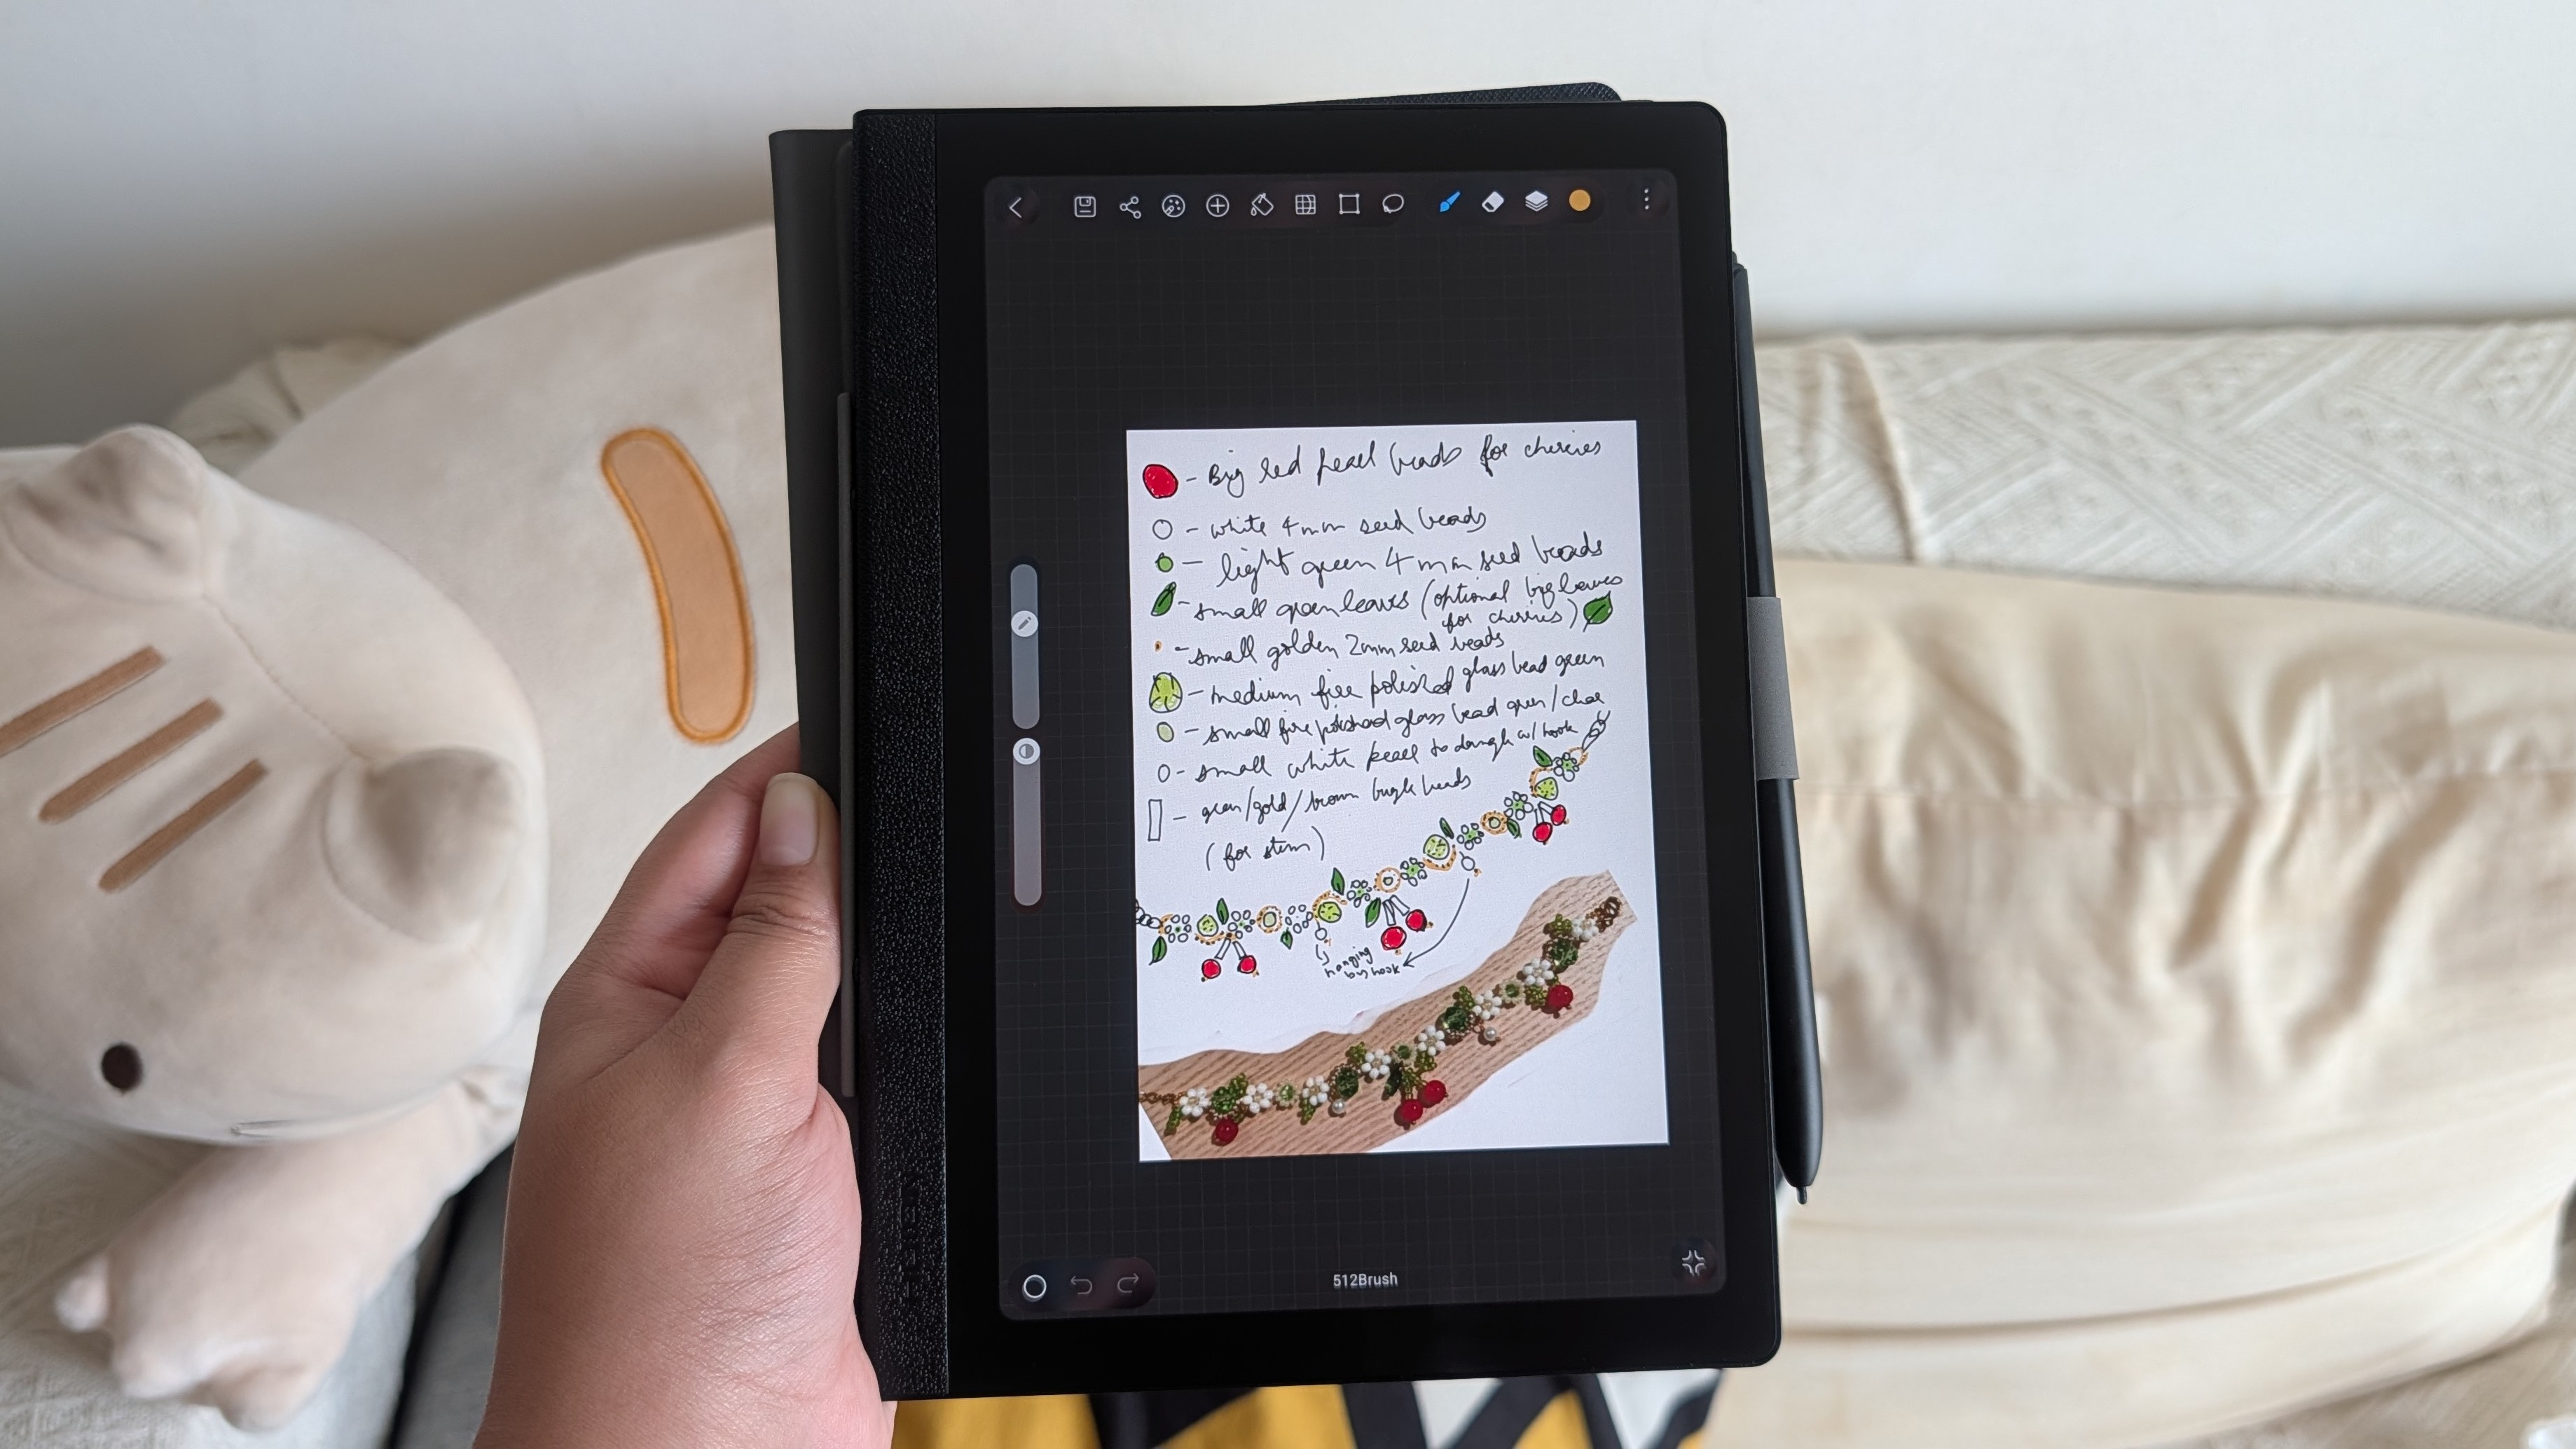 - Big red pearl beads for cherries
- white 4mm seed beads
- light green 4mm seed beads
- small green leaves (optional big leaves
for cherries)
- small golden 2mm seed beads
- medium fire polished glass bead green
- small fire polished glass bead green/
- small white pearl to dangle w/ hook
- green/gold/brown bugle beads
(for stem)
hanging
by hook
512Brush